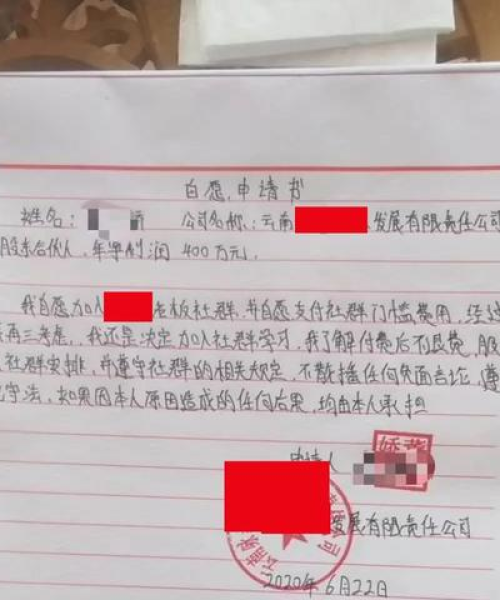 自愿申请书
姓名: 公司名称:云南 发展有限责任公司
股东合伙人,年净利润400万元.
我自愿加入 老板社群,并自愿支付社群门槛费用,经过
再三考虑,我还是决定加入社群学习,我了解付费后不退费,服
社群安排,并遵守社群的相关规定,不散播任何负面言论,遵
守法,如果因本人原因造成的任何后果,均由本人承担
申请人
发展有限责任公司
2020年6月22日